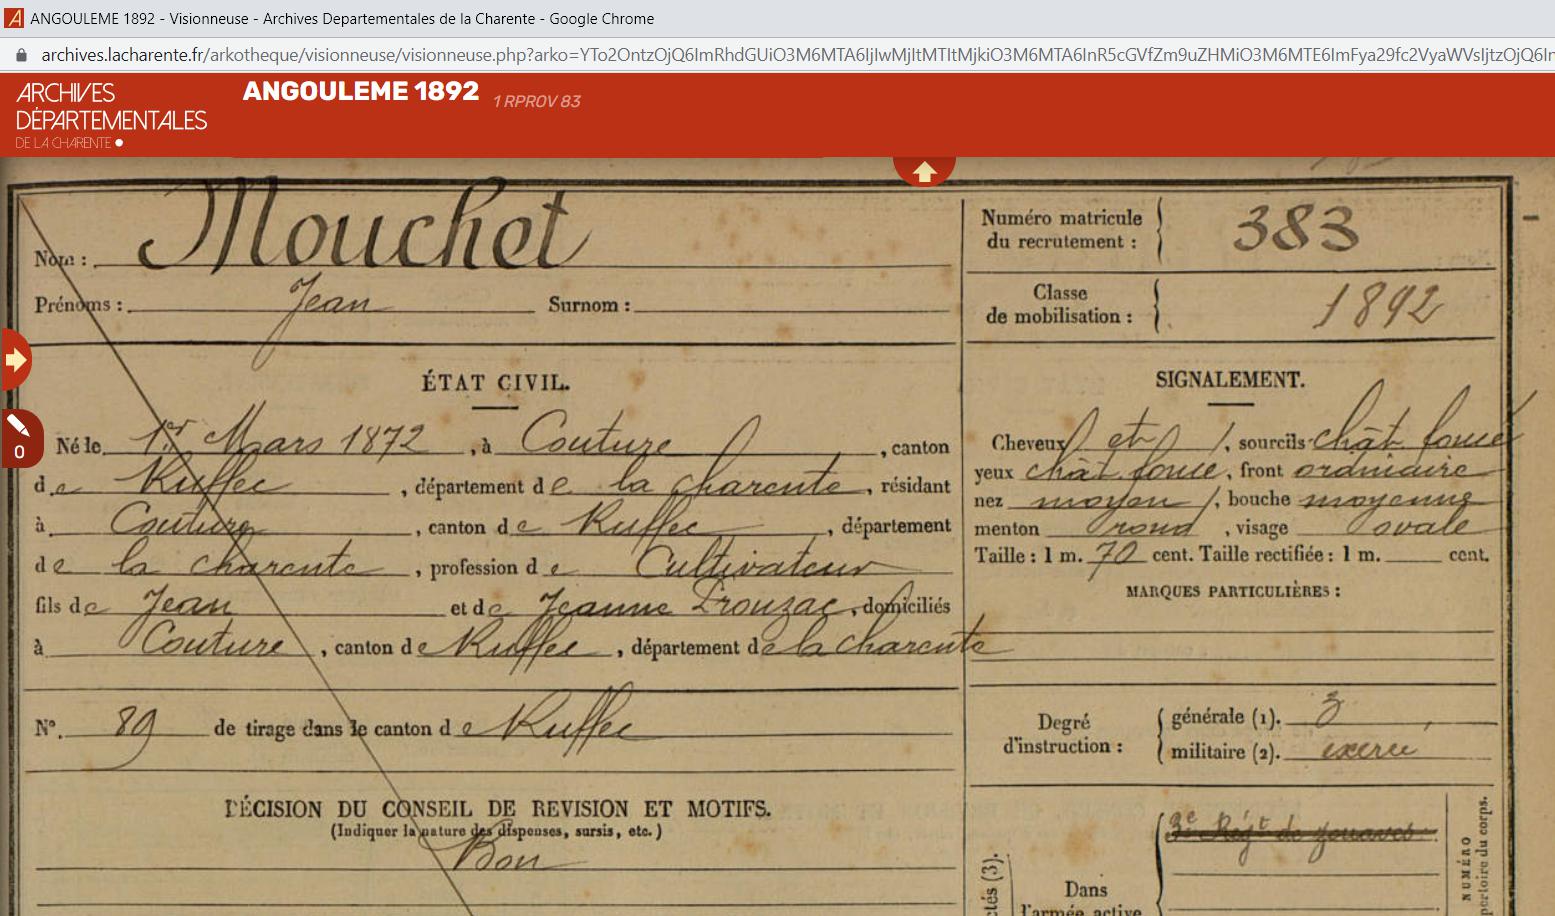 ANGOULEME 1892 - Visionneuse - Archives Departementales de la Charente - Google Chrome
archives.lacharente.fr/arkotheque/visionneuse/visionneuse.php?arko=YTo2OntzOjQ6ImRhdGUiO3M6MTA6IjIwMjItMTItMjkiO3M6MTA6InR5cGVfZm9uZHMiO3M6MTE6ImFya29fc2VyaWVsIjtzOjQ6In
ARCHIVES
DÉPARTEMENTALES
DE LA CHARENTE
ANGOULEME 1892 1 RPROV 83
Nom : Mouchet
Prénoms : Jean Surnom :
Numéro matricule
du recrutement : 383
Classe
de mobilisation : 1892
ÉTAT CIVIL.
Né le 1er Mars 1872, à Couture, canton
de Ruffec, département de la charente, résidant
à Couture, canton de Ruffec, département
de la charente, profession de Cultivateur
fils de Jean et de Jeanne Drouzac, domiciliés
à Couture, canton de Ruffec, département de la charente
N° 89 de tirage dans le canton de Ruffec
DÉCISION DU CONSEIL DE REVISION ET MOTIFS.
(Indiquer la nature des dispenses, sursis, etc.)
Bon
SIGNALEMENT.
Cheveux et, sourcils chât. foncé
yeux chât. foncé, front ordinaire
nez moyen, bouche moyenne
menton rond, visage ovale
Taille : 1 m. 70 cent. Taille rectifiée : 1 m. cent.
MARQUES PARTICULIÈRES :
Degré
d'instruction :
générale (1). 3
militaire (2). exercé
3e Régt de zouaves
Dans
l'armée active
ctés (3).
NUMÉRO
pertoire du corps.
0